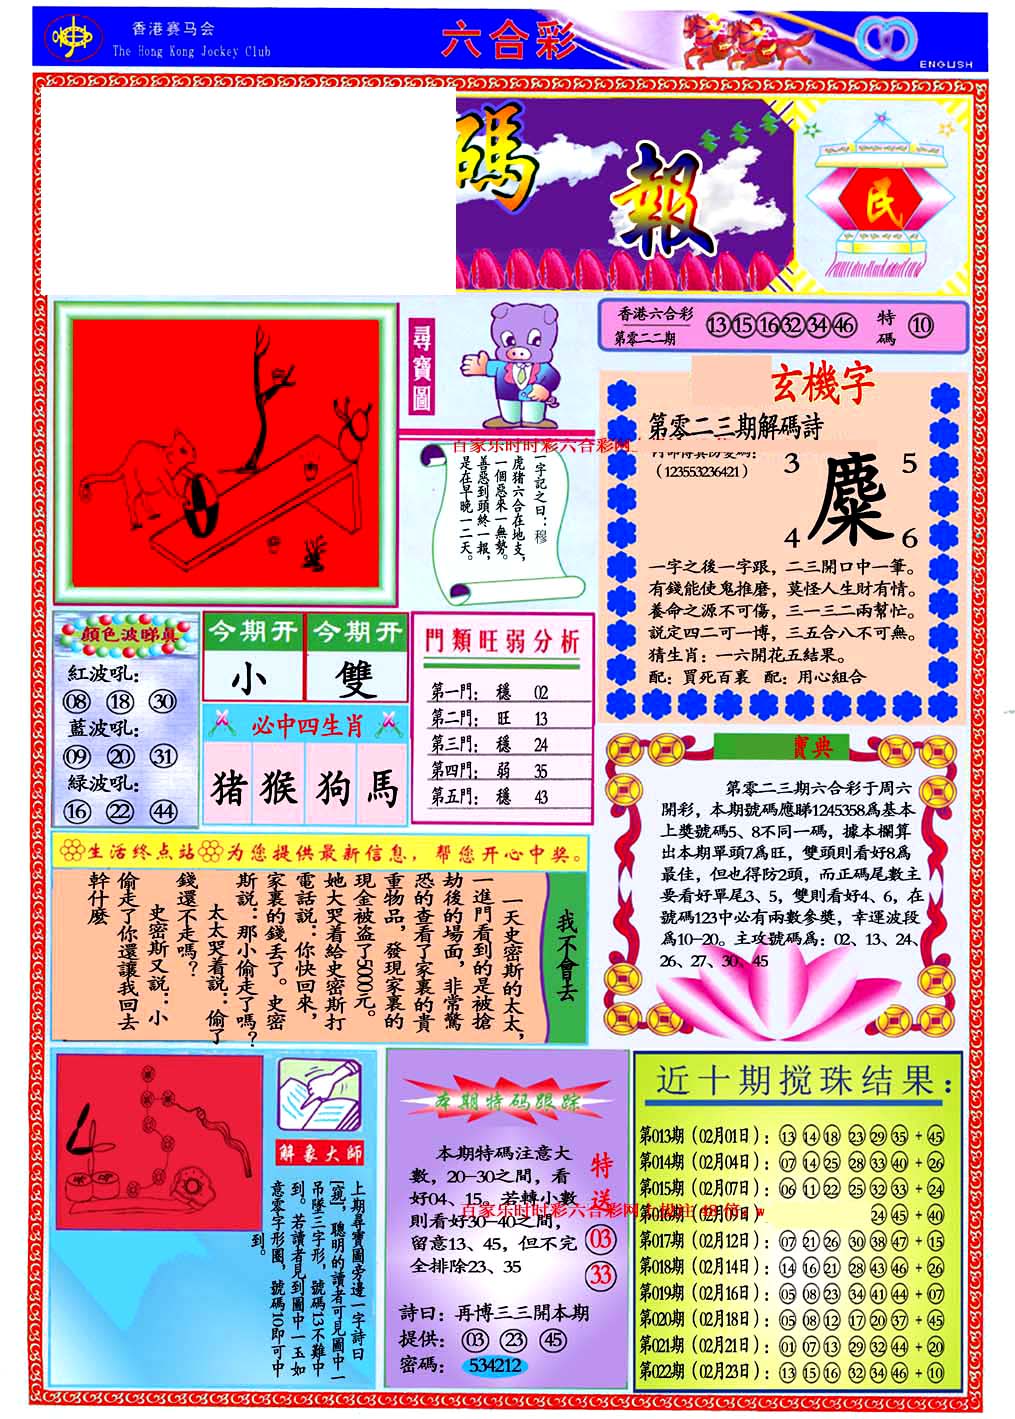 香港赛马会
The Hong Kong Jockey Club
六合彩
ENGLISH
碼報
民
尋寶圖
香港六合彩
第零二二期
13 15 16 32 34 46
特碼
10
玄機字
第零二三期解碼詩
（123553236421）
3
5
麋
4
6
一字之後一字跟，二三開口中一筆。
有錢能使鬼推磨，莫怪人生財有情。
養命之源不可傷，三一三二兩幫忙。
說定四二可一博，三五合八不可無。
猜生肖：一六開花五結果。
配：買死百裏 配：用心組合
一字記之日：穆
虎猪六合在地支，
一個惡來一無勢。
善惡到頭終一報，
是在早晚一二天。
顏色波睇真
紅波吼：
08 18 30
藍波吼：
09 20 31
緑波吼：
16 22 44
今期开
小
今期开
雙
必中四生肖
猪 猴 狗 馬
門類旺弱分析
第一門： 穩 02
第二門： 旺 13
第三門： 穩 24
第四門： 弱 35
第五門： 穩 43
寶典
第零二三期六合彩于周六
開彩，本期號碼應睇1245358爲基本
上獎號碼5、8不同一碼，據本欄算
出本期單頭7爲旺，雙頭則看好8爲
最佳，但也得防2頭，而正碼尾數主
要看好單尾3、5，雙則看好4、6，在
號碼123中必有兩數參獎，幸運波段
爲10-20。主攻號碼爲：02、13、24、
26、27、30、45
生活终点站 为您提供最新信息，帮您开心中奖。
我不會去
一天史密斯的太太，
一進門看到的是被搶
劫後的場面，非常驚
恐的查看了家裏的貴
重物品，發現家裏的
現金被盜了5000元。
她大哭着給史密斯打
電話説：你快回來，
家裏的錢丢了。史密
斯説：那小偷走了嗎？
太太哭着説：偷了
錢還不走嗎？
史密斯又説：小
偷走了你還讓我回去
幹什麽
解象大師
上期尋寶圖旁邊一字詩曰
[寬]，聰明的讀者可見圖中一
吊墜三字形，號碼13不難中
到。若讀者見到圖中一玉如
意零字形圈，號碼10即可中
到。
本期特码跟踪
本期特码注意大
數，20-30之間，看
好04、15。若轉小數
則看好30-40之間，
留意13、45，但不完
全排除23、35
特送
03
33
詩曰：再博三三開本期
提供： 03 23 45
密碼： 534212
近十期搅珠结果：
第013期（02月01日）：13 14 18 23 29 35 + 45
第014期（02月04日）：07 14 25 28 33 40 + 26
第015期（02月07日）：06 11 22 25 32 33 + 24
第016期（02月09日） 24 45 + 40
第017期（02月12日）：07 21 26 30 38 47 + 15
第018期（02月14日）：14 16 21 28 43 46 + 26
第019期（02月16日）：05 08 23 34 41 44 + 07
第020期（02月18日）：05 08 12 17 20 37 + 45
第021期（02月21日）：01 07 13 29 32 44 + 20
第022期（02月23日）：13 15 16 32 34 46 + 10
百家乐时时彩六合彩网
百家乐时时彩六合彩网